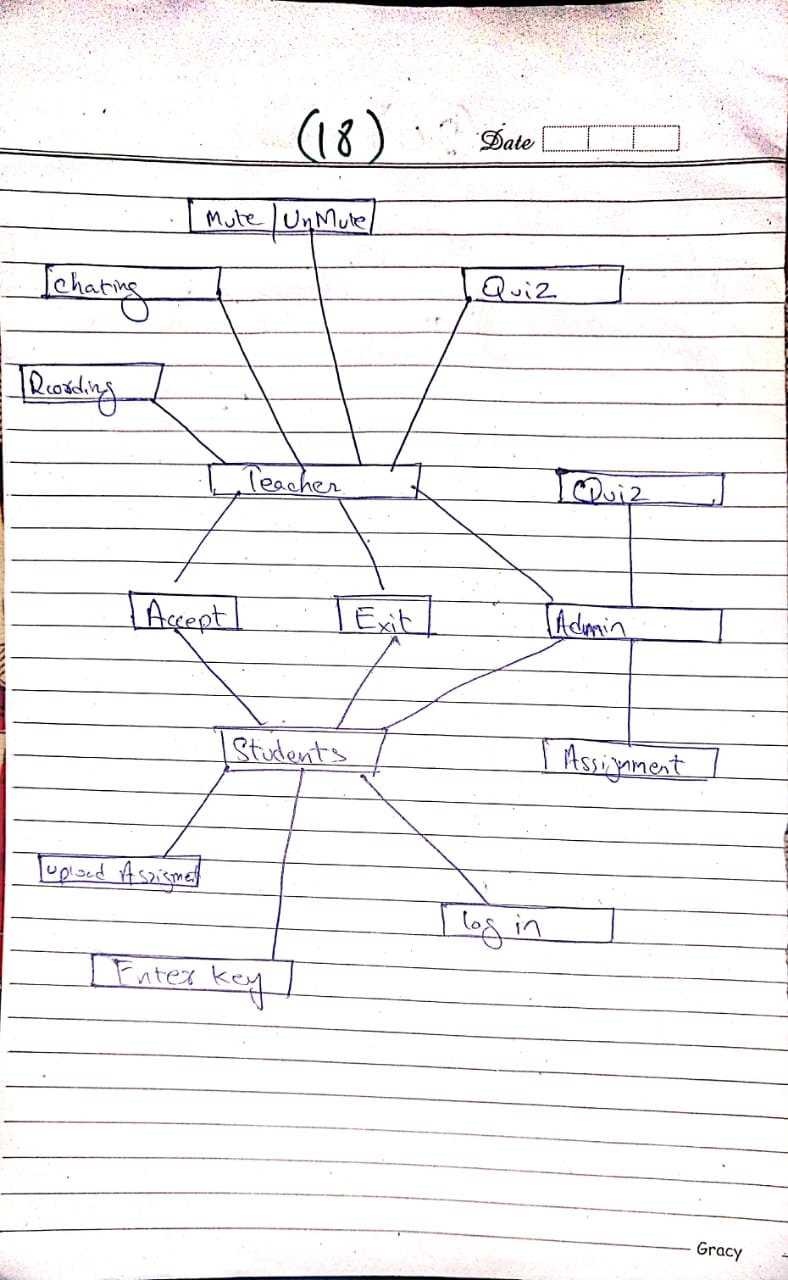 (18)
Date
Mute UnMute
Chating
Quiz
Rcording
Teacher
Quiz
Accept
Exit
Admin
Students
Assignment
Upload Assigment
log in
Enter key
Gracy